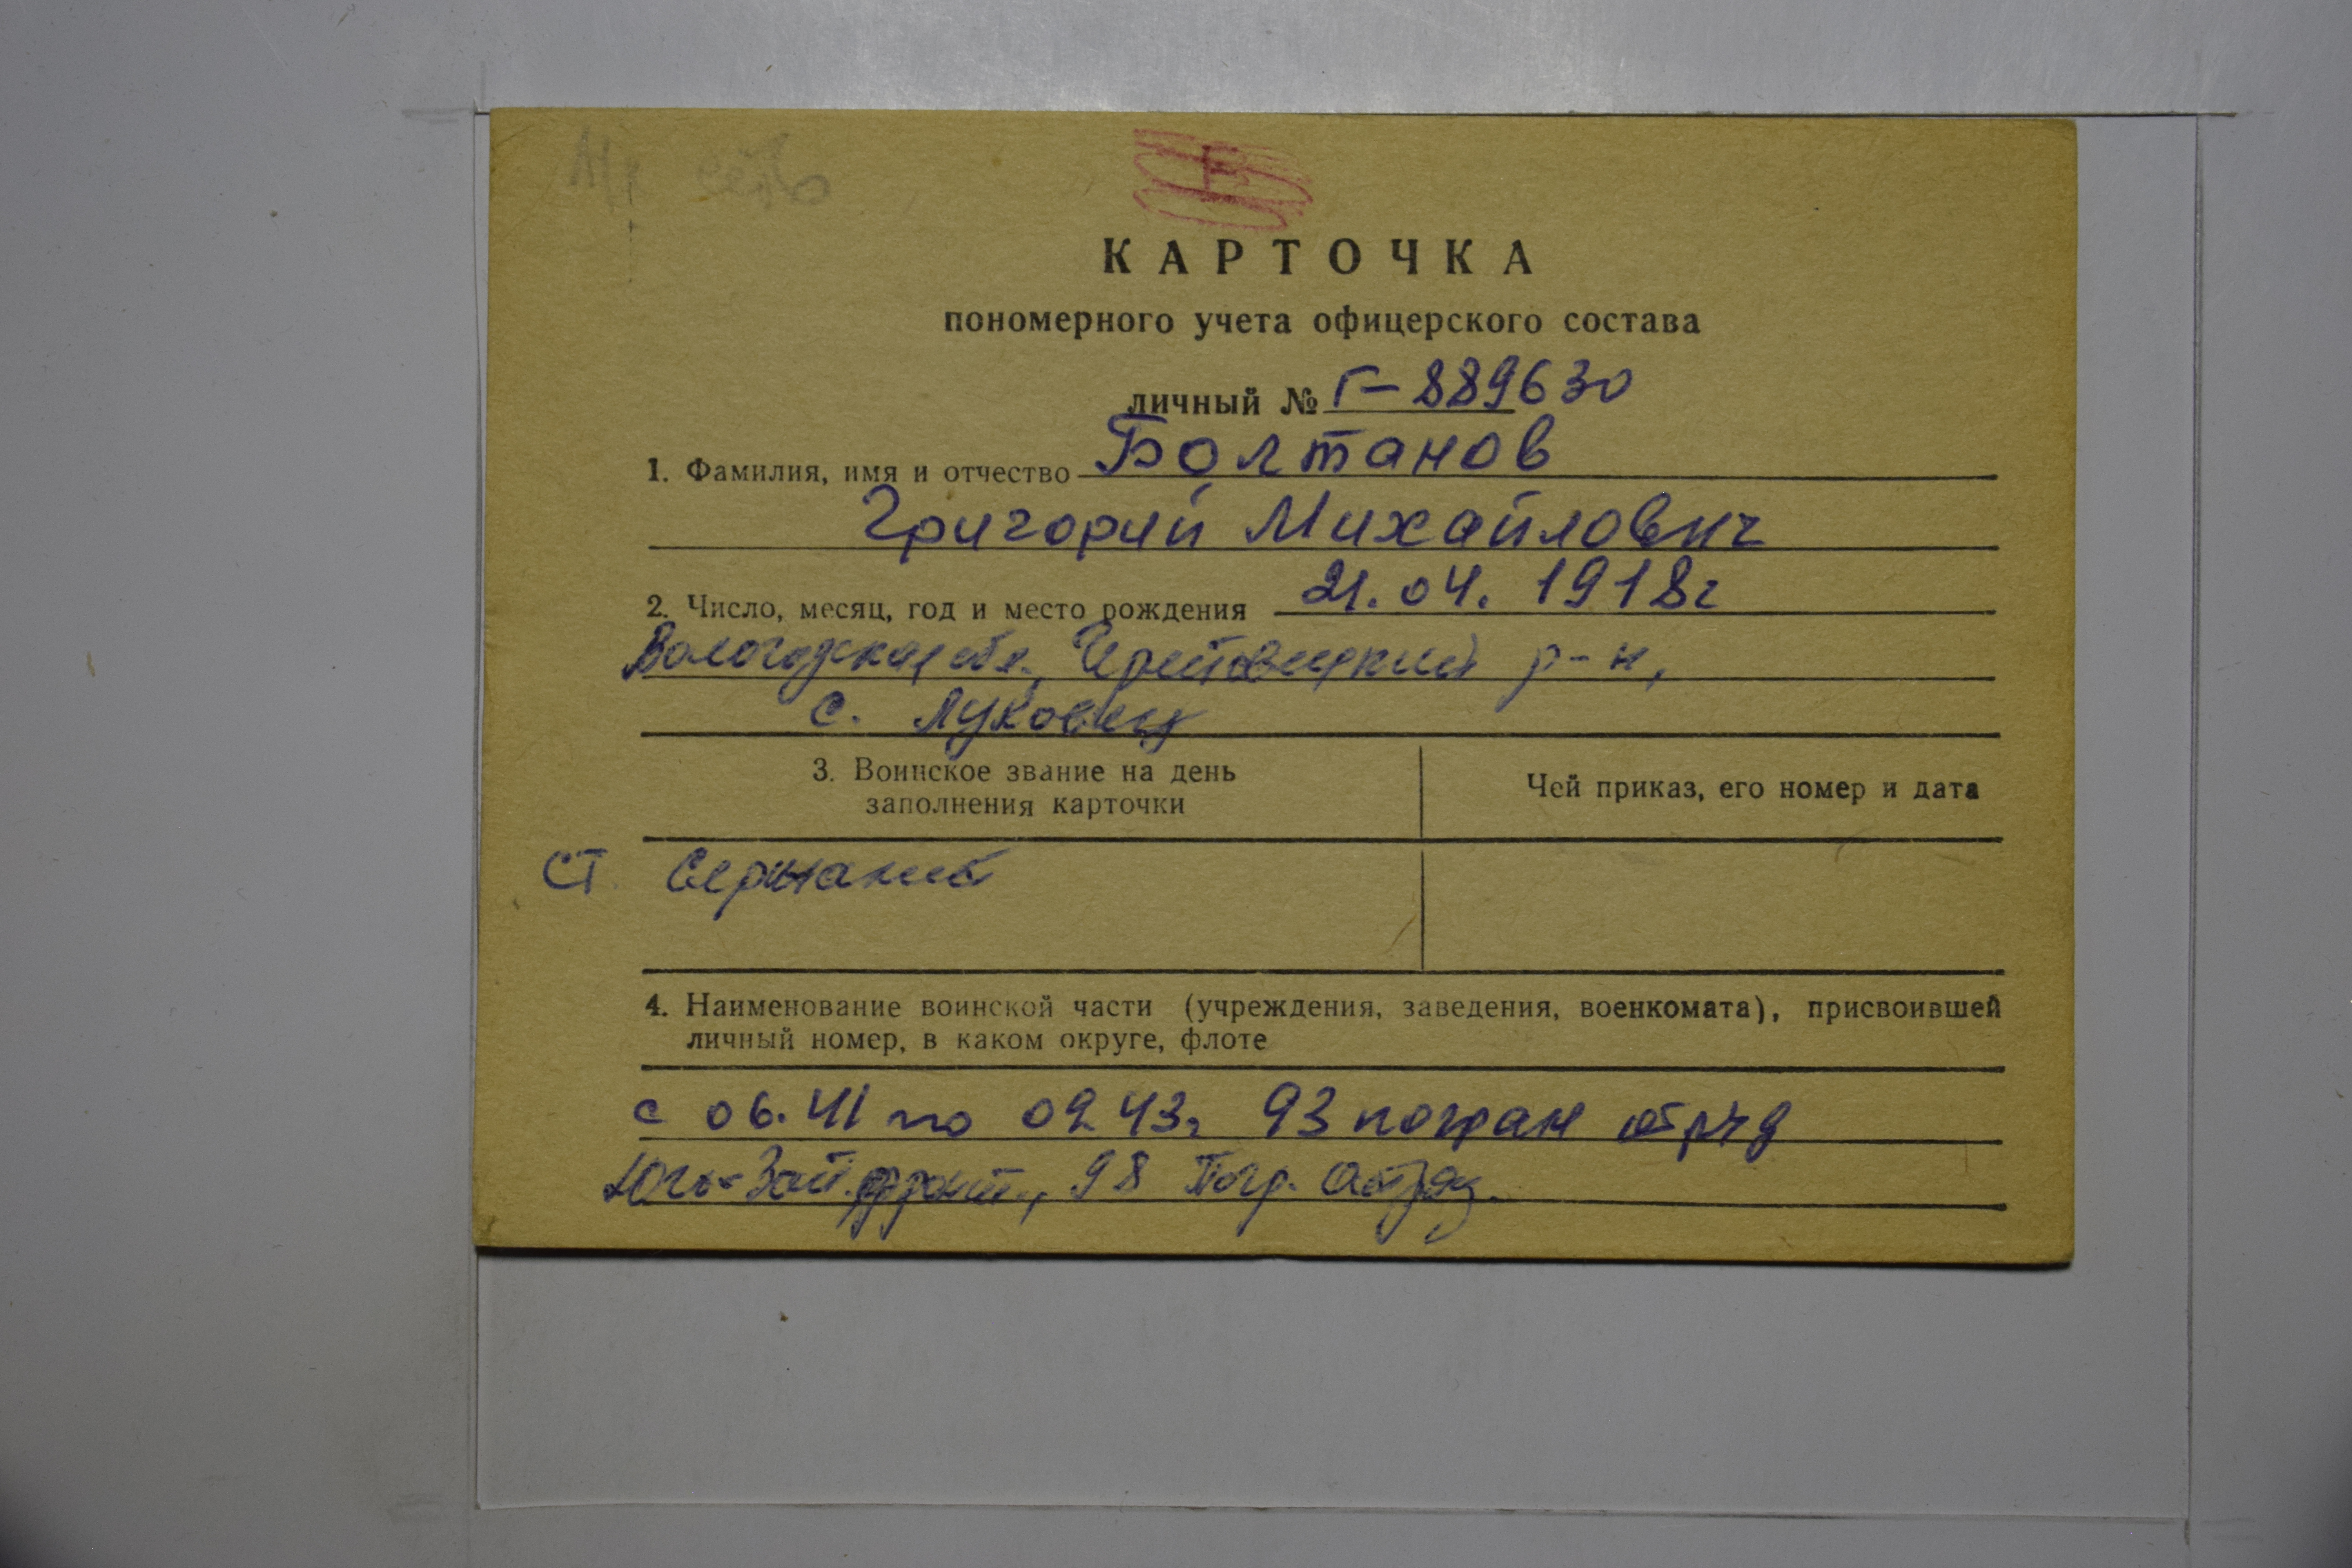 КАРТОЧКА
пономерного учета офицерского состава
личный № Г-889630
1. Фамилия, имя и отчество Болтанов
Григорий Михайлович
2. Число, месяц, год и место рождения 21.04.1918г
Вологодская обл., Череповецкий р-н,
с. Луковец
3. Воинское звание на день
заполнения карточки
Чей приказ, его номер и дата
ст. Сержант
4. Наименование воинской части (учреждения, заведения, военкомата), присвоившей
личный номер, в каком округе, флоте
с 06.41 по 09.43г 93 погран отряд
Юго-Зап. фронт., 98 Погр. Отряд.